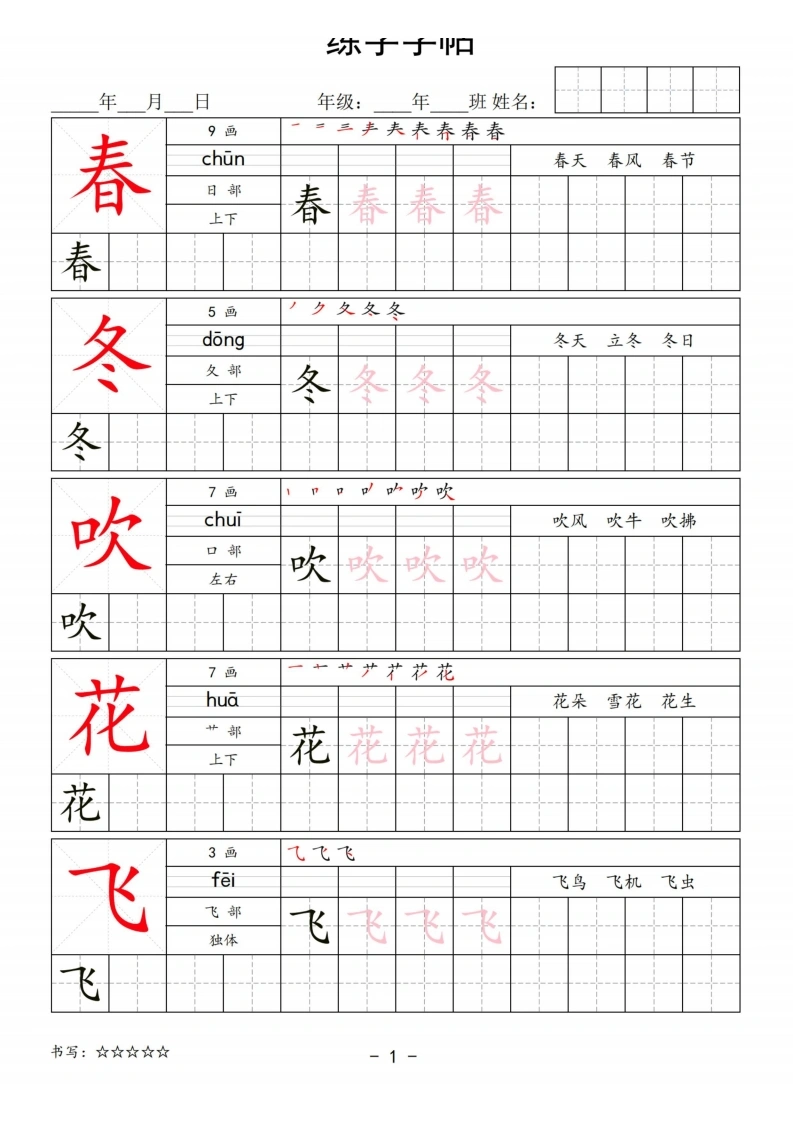 练字字帖
_____年___月___日 年级：____年____班 姓名：
春 9 画 一 二 三 𡗗 夫 春 春 春 春
chūn 春天 春风 春节
日 部 春 春 春 春
上下
春
冬 5 画 丿 ク 夂 冬 冬
dōng 冬天 立冬 冬日
夂 部 冬 冬 冬 冬
上下
冬
吹 7 画 丨 冂 口 吖 吹 吹 吹
chuī 吹风 吹牛 吹拂
口 部 吹 吹 吹 吹
左右
吹
花 7 画 一 十 艹 花 花 花 花
huā 花朵 雪花 花生
艹 部 花 花 花 花
上下
花
飞 3 画 乁 飞 飞
fēi 飞鸟 飞机 飞虫
飞 部 飞 飞 飞 飞
独体
飞
书写：☆☆☆☆☆ - 1 -